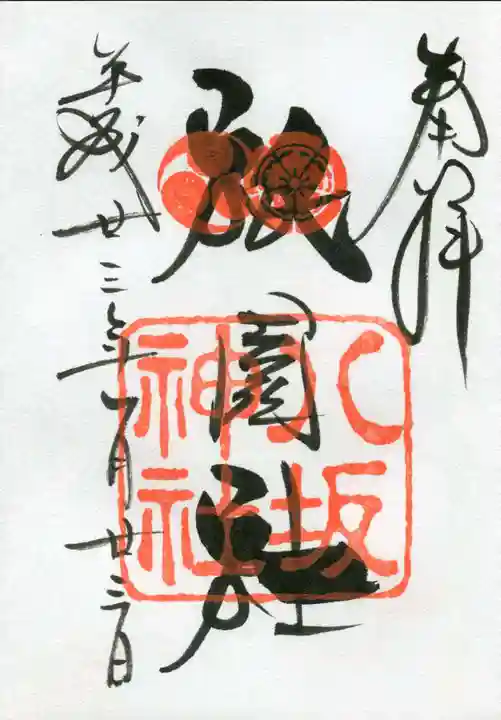 奉拝
祇園社
八坂
神社
平成廿三年 月廿 日